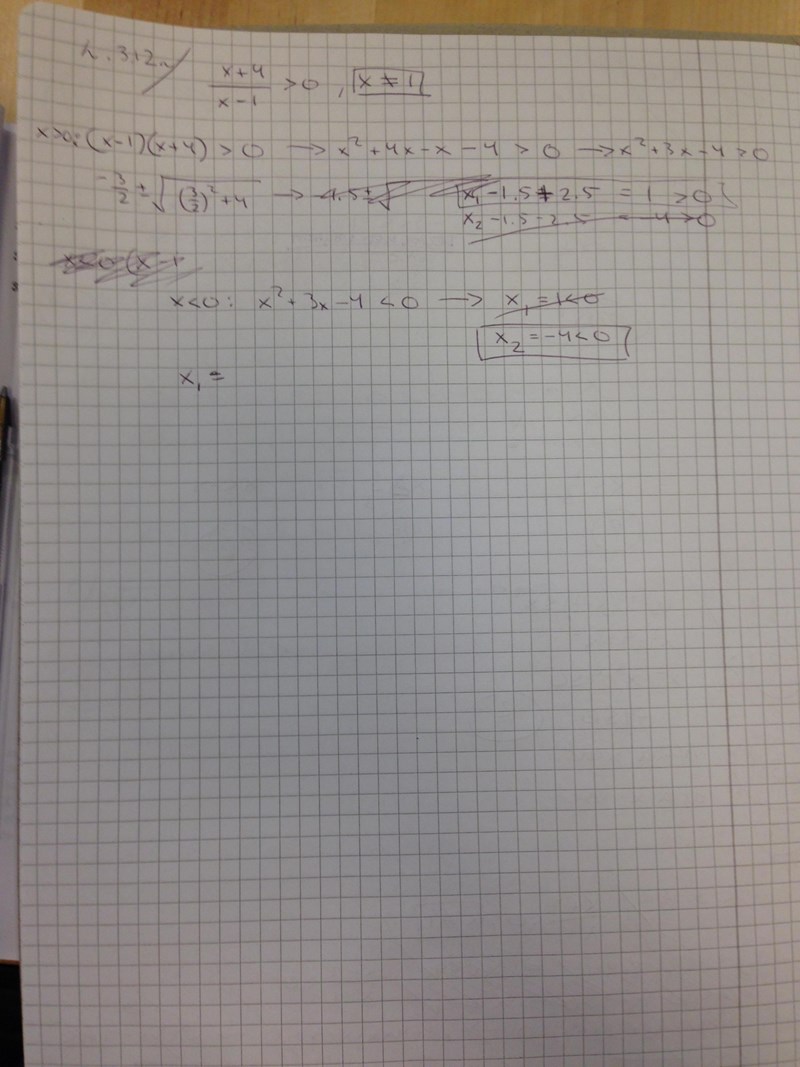 4.312.
x+4 / x-1 > 0 , x ≠ 1
x>0: (x-1)(x+4) > 0 → x² + 4x - x - 4 > 0 → x² + 3x - 4 > 0
-3/2 ± √(3/2)² + 4 → x₁ -1.5 + 2.5 = 1 > 0
x₂ -1.5 - 2.5 = -4 > 0
x<0 (x-1
x<0: x² + 3x - 4 < 0 → x₁ = 1 < 0
x₂ = -4 < 0
x₁ =